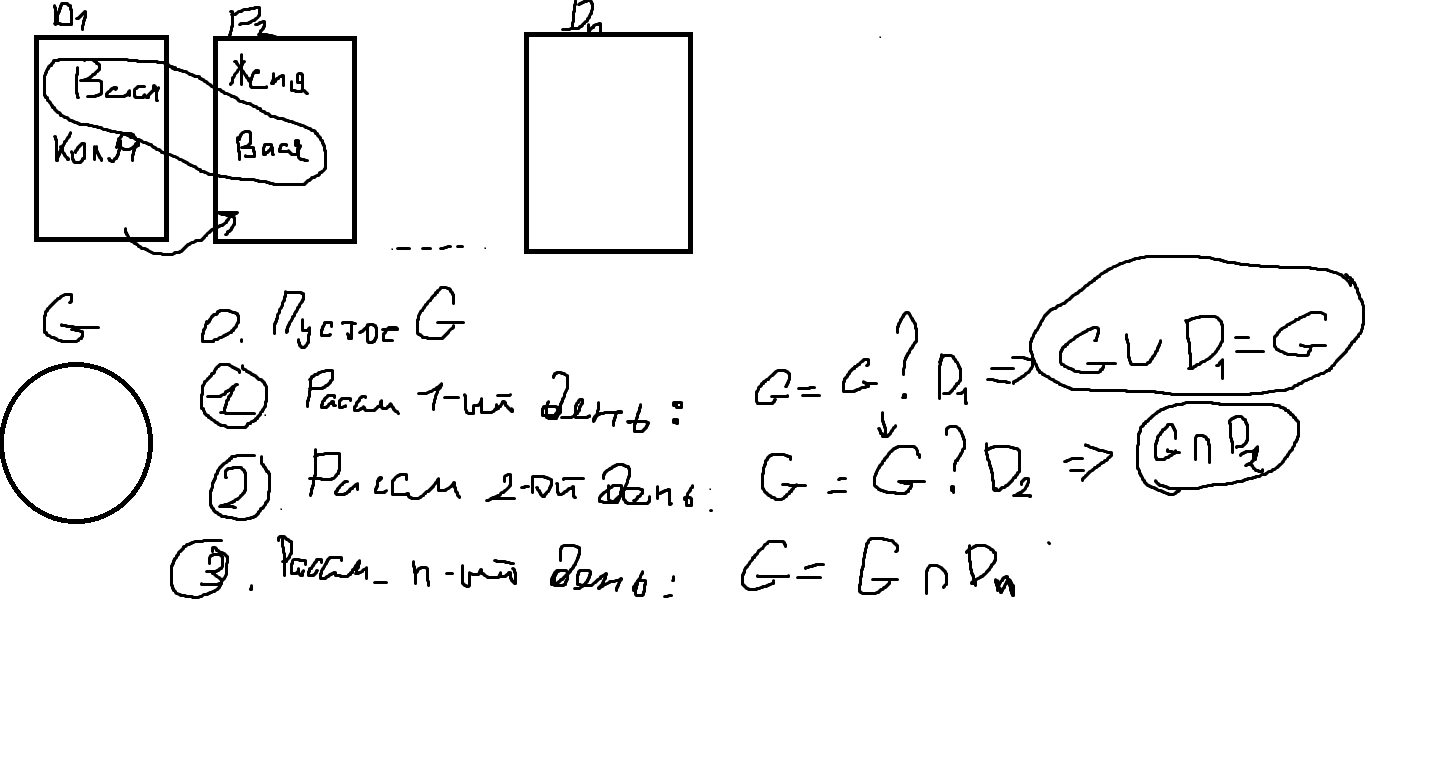 D1 D2 Dn
Вася Женя
Коля Вася
G 0. Пустое G
1 Рассм 1-ый день: G = G ? D1 => G ∪ D1 = G
2 Рассм 2-ой день: G = G ? D2 => G ∩ D2
3. Рассм_ n-ый день: G = G ∩ Dn